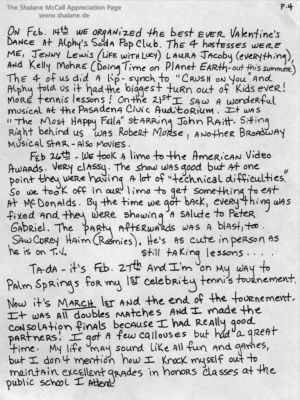 The Shalane McCall Appreciation Page
www.shalane.de
P.4
ON Feb. 14th we organized the best ever Valentine's
Dance at Alphy's Soda Pop Club. The 4 hostesses were
Me, Jenny Lewis (Life with Lucy) Laura Jacoby (everything),
And Kelly Mohre (Doing Time on Planet Earth, out this summer)
The 4 of us did a lip-synch to "Crush on You" and
Alphy told us it had the biggest turn out of Kids ever!
More tennis lessons! On the 21st I saw a wonderful
musical at the Pasadena Civic Auditorium. It was
"The Most Happy Fella" starring John Raitt. Sitting
Right behind us was Robert Morse, another Broadway
Musical star - Also Movies.
Feb 26th - We took a limo to the American Video
Awards. Very classy. The show was good but at one
point they were having a lot of "technical difficulties,"
So we took off in our limo to get something to eat
At McDonalds. By the time we got back, everything was
fixed and they were showing a salute to Peter
Gabriel. The party afterwards was a blast, too.
Saw Corey Haim (Roomies), He's as cute in person as
he is on T.V. still taking lessons....
Ta-da - it's Feb. 27th And I'm on my way to
Palm Springs for my 1st celebrity tennis tournement.
Now it's March 1st and the end of the tournement.
It was all doubles matches and I made the
consolation finals because I had really good
partners! I got a few callouses but had a great
time. My life may sound like all fun and games,
but I don't mention how I knock myself out to
maintain excellent grades in honors classes at the
public school I attend!